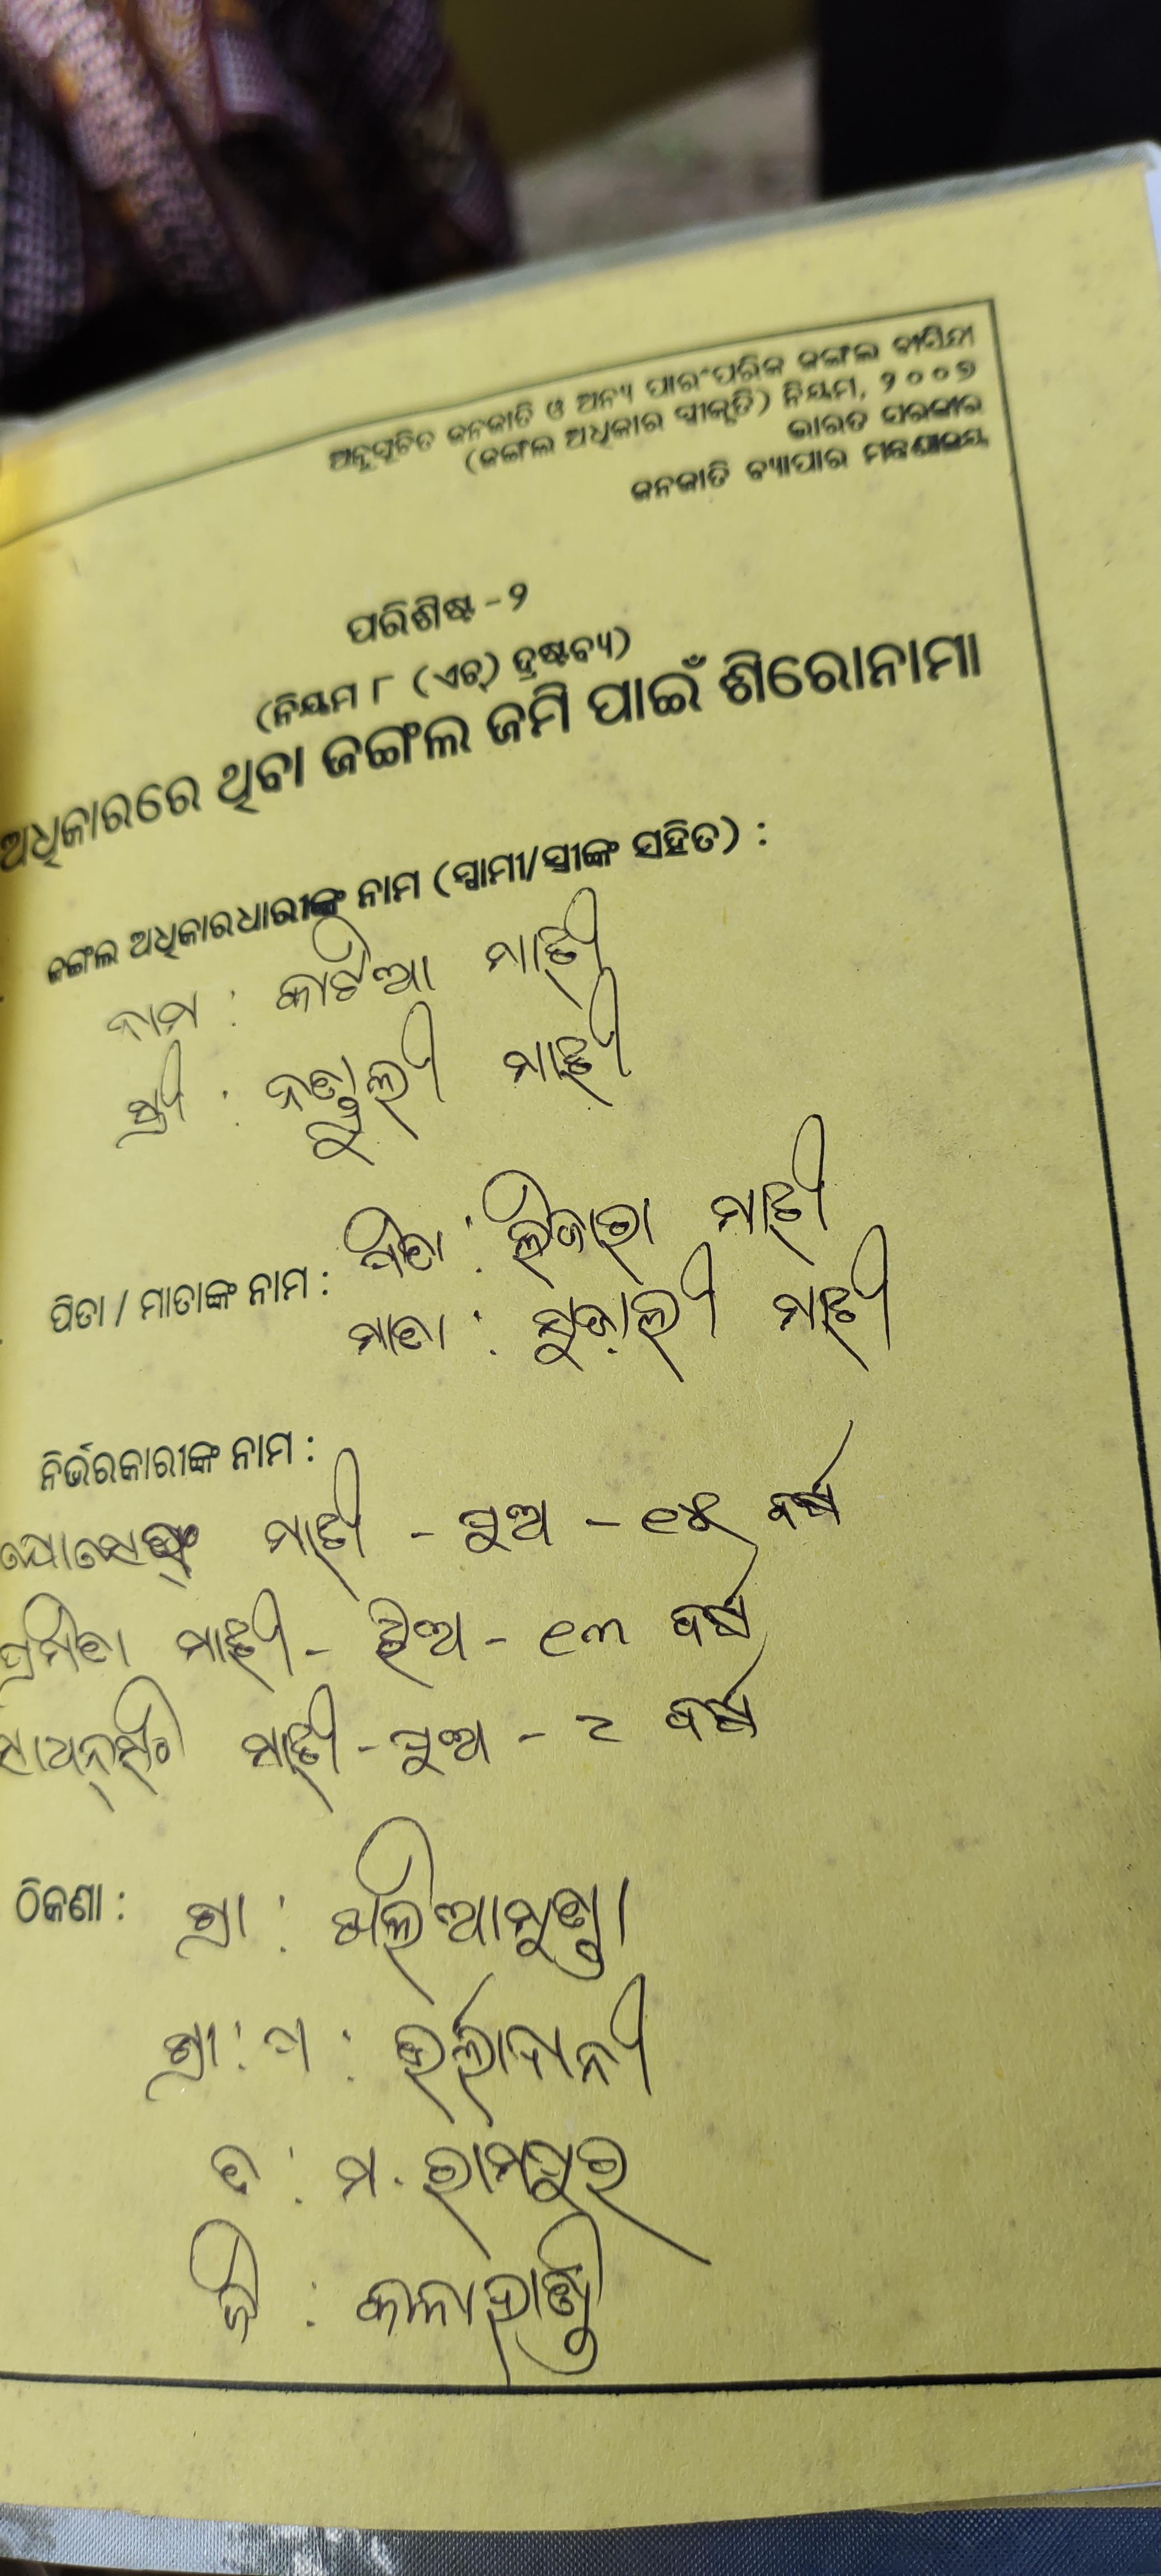 ଅନୁସୂଚିତ ଜନଜାତି ଓ ଅନ୍ୟ ପାରଂପରିକ ଜଙ୍ଗଲ ବାସିନ୍ଦା
(ଜଙ୍ଗଲ ଅଧିକାର ସ୍ୱୀକୃତି) ନିୟମ, ୨୦୦୭
ଭାରତ ସରକାର
ଜନଜାତି ବ୍ୟାପାର ମନ୍ତ୍ରଣାଳୟ
ପରିଶିଷ୍ଟ - ୨
(ନିୟମ ୮ (ଏଚ୍) ଦ୍ରଷ୍ଟବ୍ୟ)
ଅଧିକାରରେ ଥିବା ଜଙ୍ଗଲ ଜମି ପାଇଁ ଶିରୋନାମା
ଜଙ୍ଗଲ ଅଧିକାରଧାରୀଙ୍କ ନାମ (ସ୍ୱାମୀ/ସ୍ତ୍ରୀଙ୍କ ସହିତ) :
ନାମ : କାଟିଆ ମାଝୀ
ସ୍ତ୍ରୀ : ମାଝୀ
ପିତା : ମାଝୀ
ପିତା / ମାତାଙ୍କ ନାମ :
ମାତା : ମାଝୀ
ନିର୍ଭରକାରୀଙ୍କ ନାମ :
ମାଝୀ - ପୁଅ - ୧୫ ବର୍ଷ
ପ୍ରମିତା ମାଝୀ - ଝିଅ - ୧୩ ବର୍ଷ
ମାଝୀ - ପୁଅ - ବର୍ଷ
ଠିକଣା : ଗ୍ରା : ଖଲିଆମୁଣ୍ଡା
ଗ୍ରା : ପ :
ବ : ମ. ରାମପୁର
ଜି : କଳାହାଣ୍ଡି